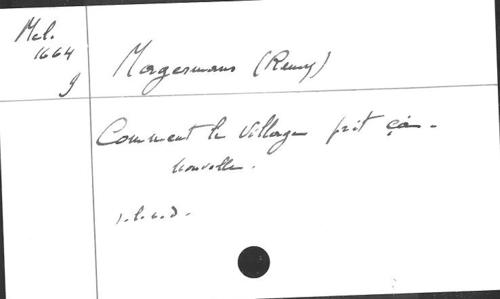 Mel.
1664
9
Morgermans (Remy)
Comment le village prit ça.
Nouvelle.
s.l.n.d.